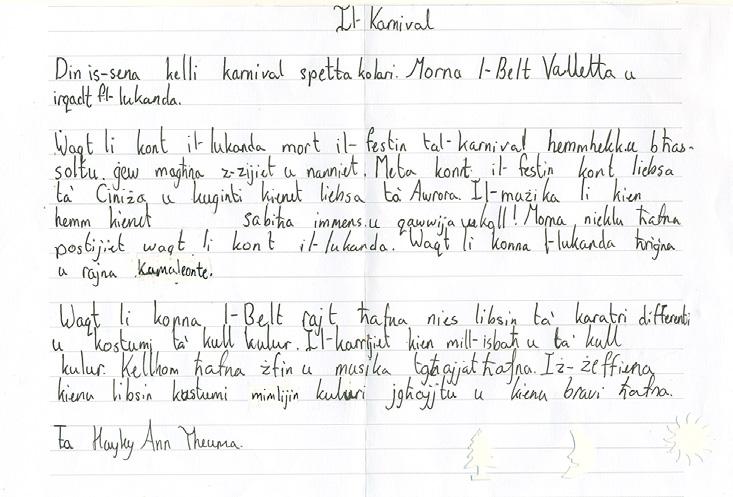 Il-Karnival
Din is-sena kelli karnival spettakolari. Morna l-Belt Valletta u
irqadt fl-lukanda.
Waqt li kont il-lukanda mort il-festin tal-karnival hemmhekk.u bħas-
soltu. ġew magħna z-zijiet u nanniet. Meta konnt il-festin kont liebsa
ta' Ċiniża u kuġinti kienet liebsa ta' Awrora. Il-mużika li kien
hemm kienet sabiħa immens.u qawwija wkoll! Morna nieklu ħafna
postijiet waqt li kont il-lukanda. Waqt li konna l-lukanda ħriġna
u rajna Kamaleonte.
Waqt li konna l-Belt rajt ħafna nies libsin ta' karatri differenti
u kostumi ta' kull kulur. Il-karrijiet kien mill-isbaħ u ta' kull
kulur. Kellhom ħafna żfin u musika tgħajjat ħafna. Iż-żeffiena
kienu libsin kostumi mimlijin kuluri jgħajjtu u kienu bravi ħafna.
Ta Hayky Ann Theuma.